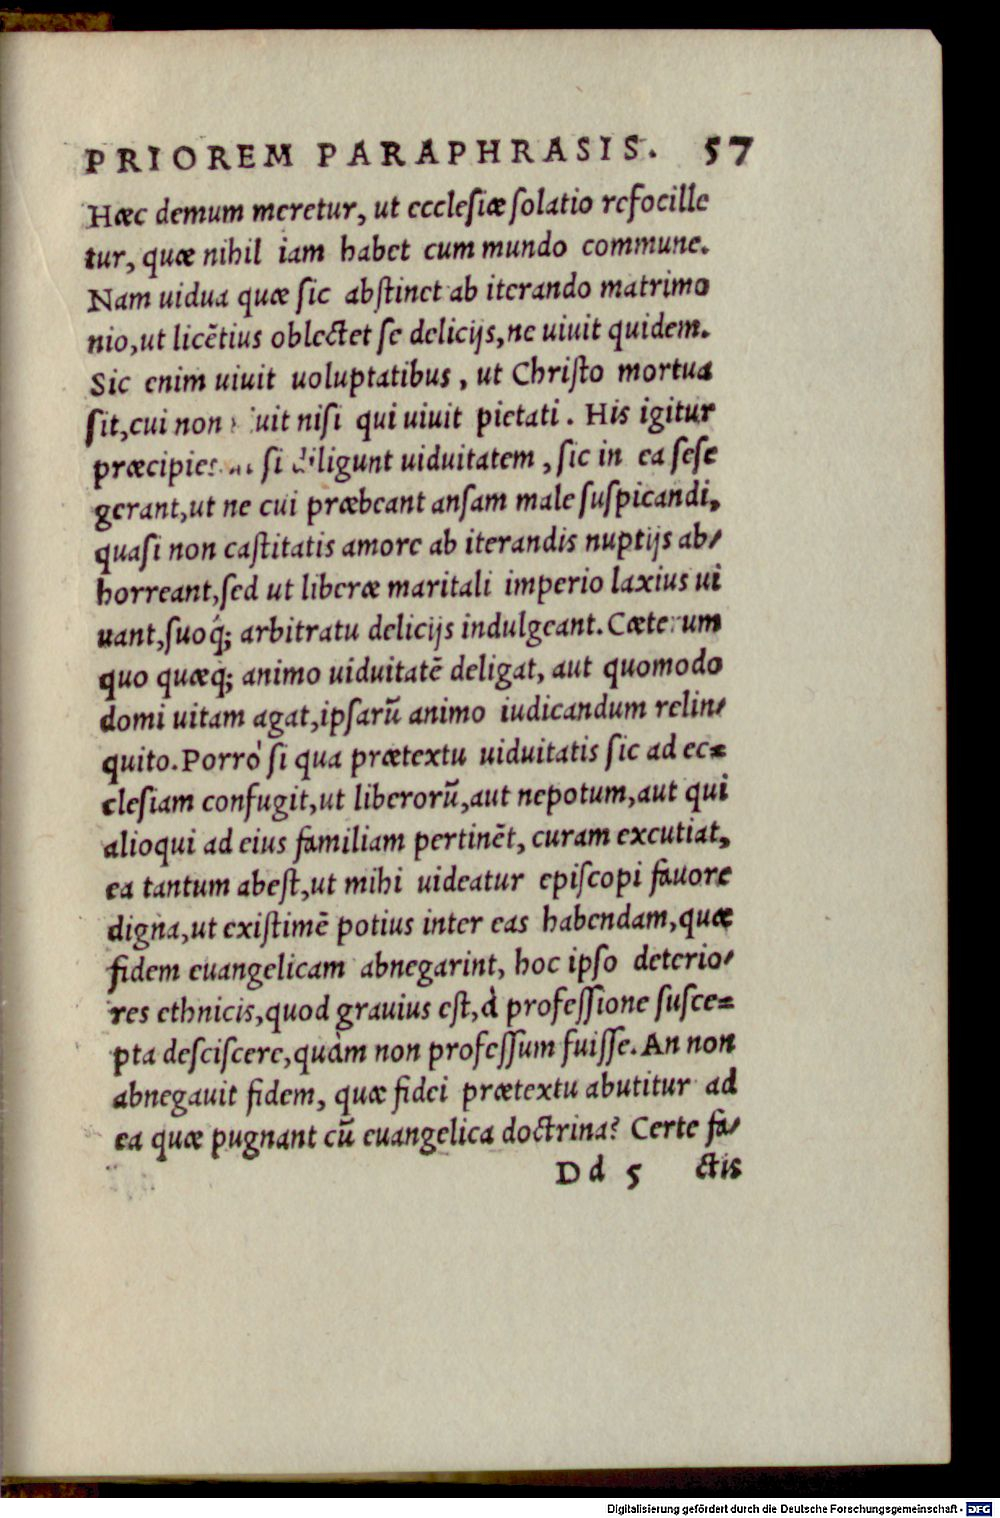 PRIOREM PARAPHRASIS. 57
Hæc demum meretur, ut ecclesiæ solatio refocille
tur, quæ nihil iam habet cum mundo commune.
Nam uidua quæ sic abstinet ab iterando matrimo
nio, ut licẽtius oblectet se delicijs, ne uiuit quidem.
Sic enim uiuit uoluptatibus, ut Christo mortua
sit, cui non uit nisi qui uiuit pietati. His igitur
præcipies si diligunt uiduitatem, sic in ea sese
gerant, ut ne cui præbeant ansam male suspicandi,
quasi non castitatis amore ab iterandis nuptijs ab/
horreant, sed ut liberæ maritali imperio laxius ui
uant, suoq́; arbitratu delicijs indulgeant. Cæterum
quo quæq; animo uiduitatẽ deligat, aut quomodo
domi uitam agat, ipsarũ animo iudicandum relin/
quito. Porrò si qua prætextu uiduitatis sic ad ec=
clesiam confugit, ut liberorũ, aut nepotum, aut qui
alioqui ad eius familiam pertinẽt, curam excutiat,
ea tantum abest, ut mihi uideatur episcopi fauore
digna, ut existimẽ potius inter eas habendam, quæ
fidem euangelicam abnegarint, hoc ipso deterio/
res ethnicis, quod grauius est, à professione susce=
pta desciscere, quàm non professum fuisse. An non
abnegauit fidem, quæ fidei prætextu abutitur ad
ea quæ pugnant cũ euangelica doctrina? Certe fa/
Dd 5 ctis
Digitalisierung gefördert durch die Deutsche Forschungsgemeinschaft - DFG